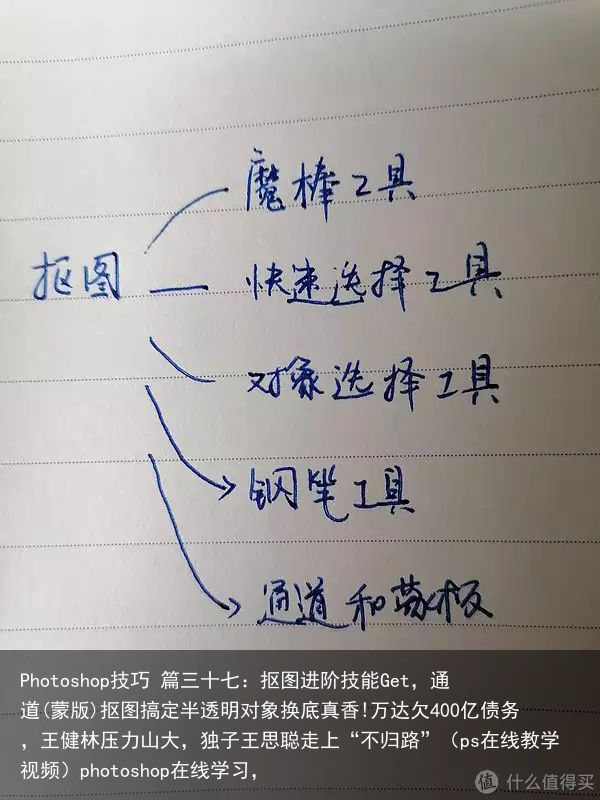 魔棒工具
抠图
快速选择工具
对象选择工具
钢笔工具
通道和蒙板
Photoshop技巧 篇三十七：抠图进阶技能Get，通
道(蒙版)抠图搞定半透明对象换底真香!万达欠400亿债务
，王健林压力山大，独子王思聪走上“不归路”（ps在线教学
视频）photoshop在线学习，
值 什么值得买